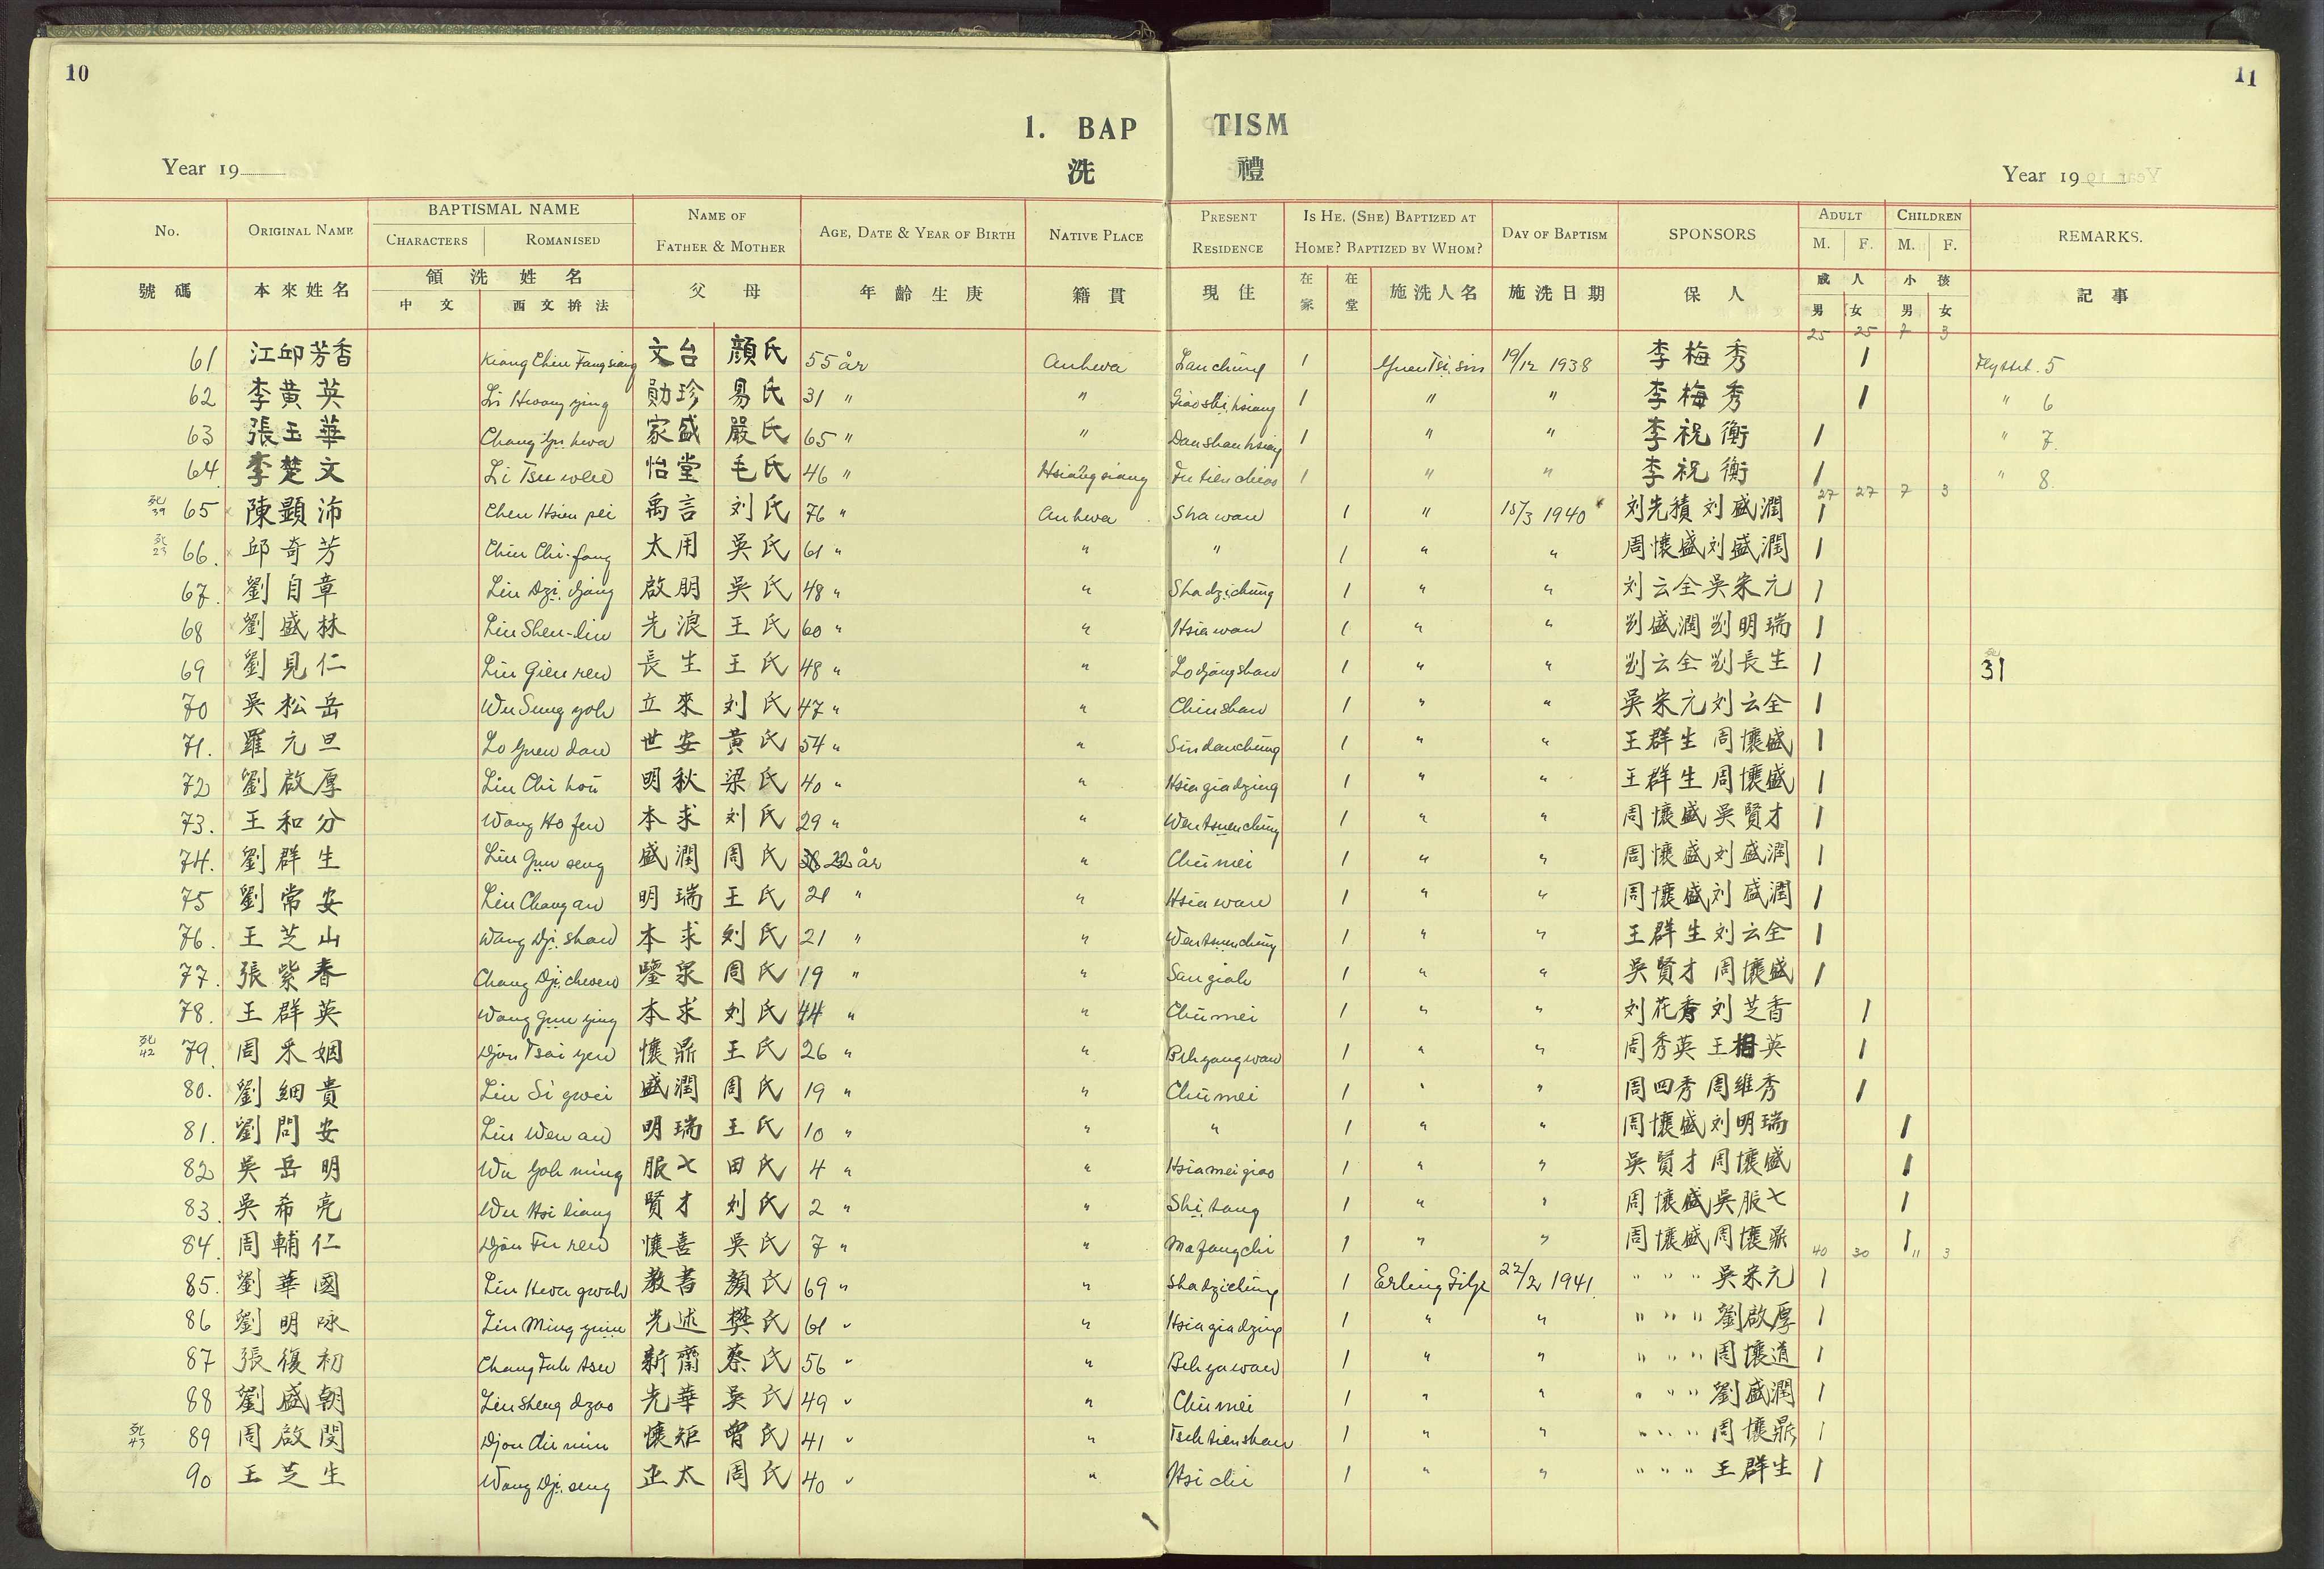 10
11
1. BAPTISM
洗 禮
Year 19
Year 19
No. ORIGINAL NAME BAPTISMAL NAME CHARACTERS ROMANISED NAME OF FATHER & MOTHER AGE, DATE & YEAR OF BIRTH NATIVE PLACE PRESENT RESIDENCE IS HE, (SHE) BAPTIZED AT HOME? BAPTIZED BY WHOM? DAY OF BAPTISM SPONSORS ADULT M. F. CHILDREN M. F. REMARKS.
號碼 本來姓名 領洗姓名 中文 西文拚法 父母 年齡生庚 籍貫 現住 在家 在堂 施洗人名 施洗日期 保人 成人 男 女 小孩 男 女 記事
25 25 7 3
61 江邱芳香 Kiang Chiu Fang siang 文台 顔氏 55 år Anhwa Lanchüng 1 Yuen Tsi sin 19/12 1938 李梅秀 1 Flyttet. 5
62 李黄英 Li Hwang ying 勛珍 易氏 31 " " Giao shi hsiang 1 " " 李梅秀 1 " 6
63 張玉華 Chang Yü hwa 家盛 嚴氏 65 " " Dan shan hsiang 1 " " 李祝衡 1 " 7.
64 李楚文 Li Tsu wen 怡堂 毛氏 46 " Hsiang siang Fu tien chiao 1 " " 李祝衡 1 " 8.
27 27 7 3
死 39 65 陳顯沛 Chen Hsien pei 禹言 刘氏 76 " Anhwa Sha wan 1 " 15/3 1940 刘先積 刘盛潤 1
死 23 66. 邱奇芳 Chiu Chi-fang 太用 吳氏 61 " " " 1 " " 周懷盛 刘盛潤 1
67. 劉自章 Liu Dzi djang 啟朋 吳氏 48 " " Sha dzi chüng 1 " " 刘云全 吳宋元 1
68 劉盛林 Liu Shen-lin 先浪 王氏 60 " " Hsia wan 1 " " 刘盛潤 刘明瑞 1
69 劉見仁 Liu Gien ren 長生 王氏 48 " " Lo djang shan 1 " " 刘云全 刘長生 1 死 31
70 吳松岳 Wu Sung yoh 立來 刘氏 47 " " Chiu shan 1 " " 吳宋元 刘云全 1
71. 羅元旦 Lo Yuen dan 世安 黄氏 54 " " Sin dan chüng 1 " " 王群生 周懷盛 1
72 劉啟厚 Liu Chi hou 明秋 梁氏 40 " " Hsia gia dzing 1 " " 王群生 周懷盛 1
73. 王和分 Wang Ho fen 本求 刘氏 29 " " Wen tsuen chüng 1 " " 周懷盛 吳賢才 1
74. 劉群生 Liu Gün seng 盛潤 周氏 22 år " Chü mei 1 " " 周懷盛 刘盛潤 1
75 劉常安 Liu Chang an 明瑞 王氏 21 " " Hsia wan 1 " " 周懷盛 刘盛潤 1
76. 王芝山 Wang Dji shan 本求 刘氏 21 " " Wen tsuen chüng 1 " " 王群生 刘云全 1
77. 張紫春 Chang Dji chwen 鑒泉 周氏 19 " " San giah 1 " " 吳賢才 周懷盛 1
78. 王群英 Wang Gün ying 本求 刘氏 44 " " Chü mei 1 " " 刘花香 刘芝香 1
死 42 79. 周采姻 Djou Tsai yen 懷鼎 王氏 26 " " Beh yang wan 1 " " 周秀英 王相英 1
80. 劉細貴 Liu Si gwei 盛潤 周氏 19 " " Chü mei 1 " " 周四秀 周維秀 1
81. 劉問安 Liu Wen an 明瑞 王氏 10 " " " 1 " " 周懷盛 刘明瑞 1
82 吳岳明 Wu Yoh ming 服七 田氏 4 " " Hsia mei giao 1 " " 吳賢才 周懷盛 1
83. 吳希亮 Wu Hsi liang 賢才 刘氏 2 " " Shi tang 1 " " 周懷盛 吳服七 1
84. 周輔仁 Djou Fu ren 懷喜 吳氏 7 " " Ma fang chi 1 " " 周懷盛 周懷鼎 1
40 30 11 3
85. 劉華國 Liu Hwa gwoh 教書 顏氏 69 " " Sha dzi chüng 1 Erling Gilje 22/2 1941. " " " 吳宋元 1
86 劉明咏 Liu Ming yuin 光述 樊氏 61 " " Hsia gia dzing 1 " " " " " 劉啟厚 1
87 張復初 Chang Fuh tsu 新齋 蔡氏 56 " " Beh ya wan 1 " " " " " 周懷道 1
88 劉盛朝 Liu Sheng dzao 光華 吳氏 49 " " Chü mei 1 " " " " " 劉盛潤 1
死 43 89 周啟閔 Djou Chi min 懷矩 曾氏 41 " " Tseh tien shan 1 " " " " " 周懷鼎 1
90 王芝生 Wang Dji seng 正太 周氏 40 " " Hsi chi 1 " " " " " 王群生 1